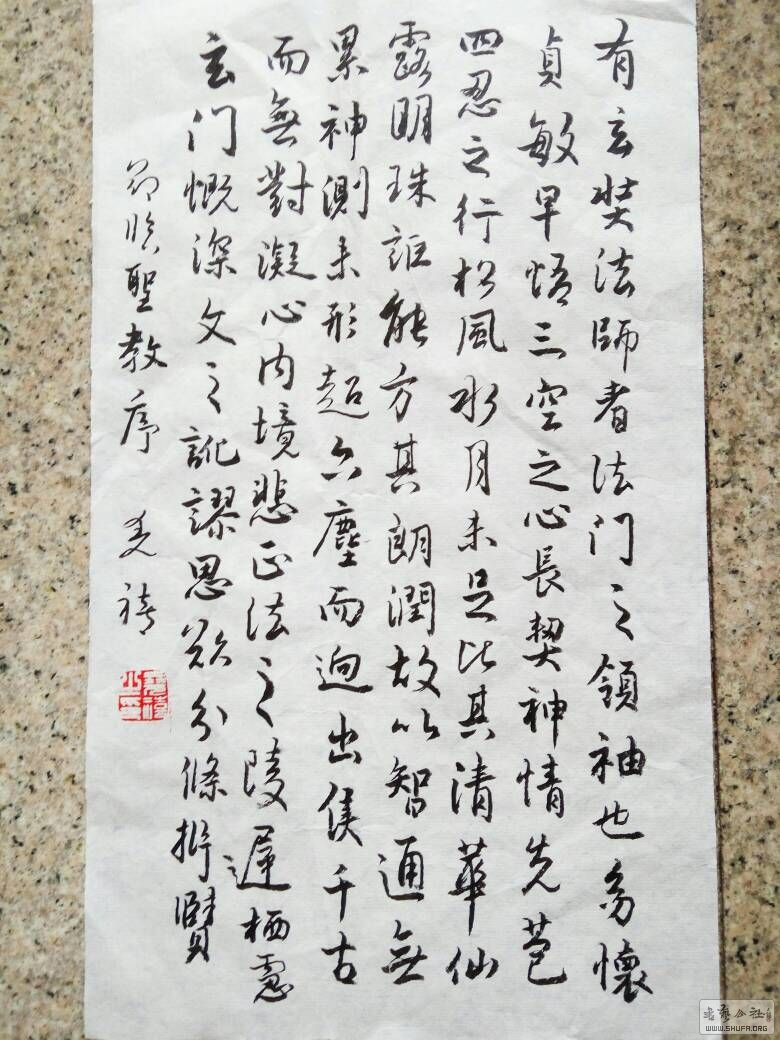 有玄奘法師者法門之領袖也幼懷
貞敏早悟三空之心長契神情先苞
四忍之行松風水月未足比其清華仙
露明珠詎能方其朗潤故以智通無
累神測未形超六塵而迥出隻千古
而無對凝心內境悲正法之陵遲栖慮
玄門慨深文之訛謬思欲分條析賢
節臨聖教序 禧
書藝公社
WWW.SHUFA.ORG